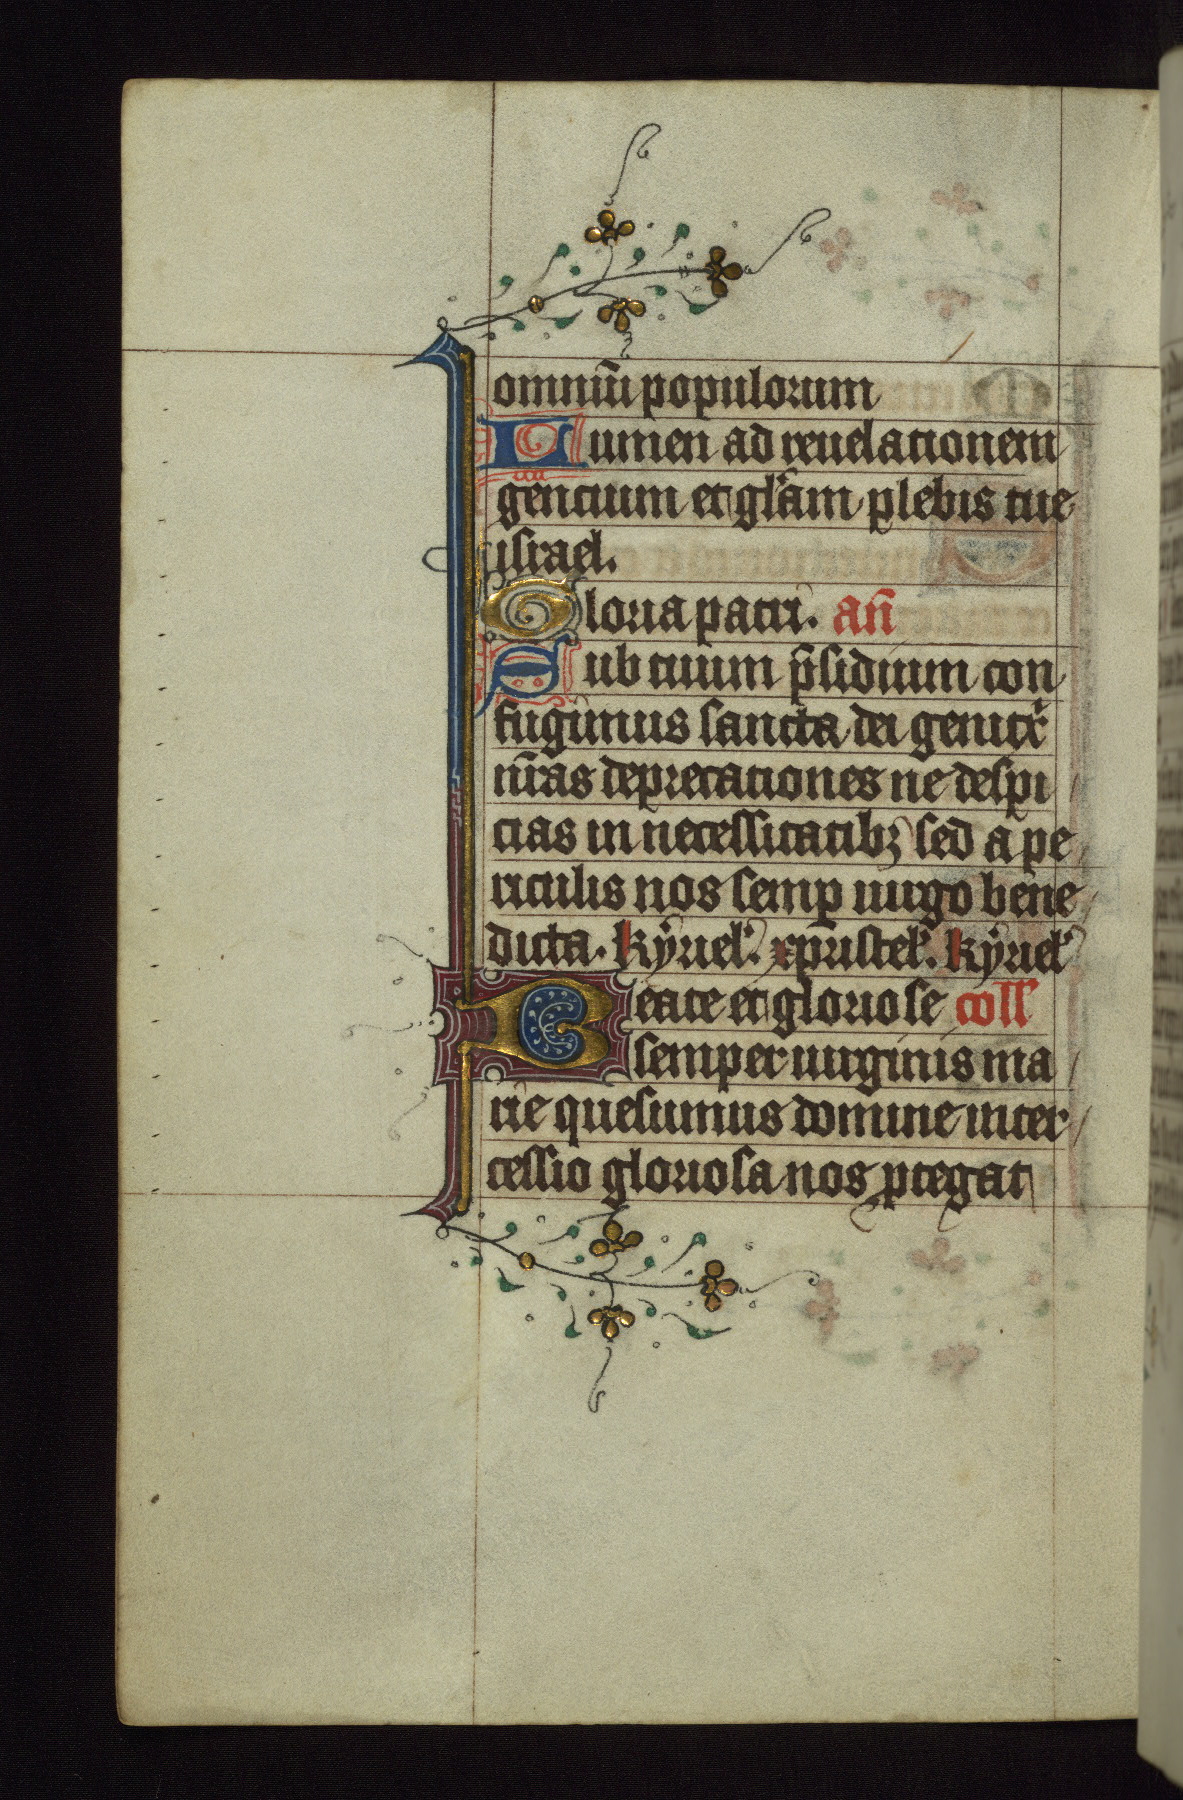 omniū populorum
Lumen ad reuelationem
gencium et glām plebis tue
israel.
Gloria patri. añ
Sub tuum p̄sidium con
fugimus sancta dei genitx̄
nr̄as deprecationes ne despi
cias in necessitatibꝫ sed a pe
riculis nos semꝑ uirgo bene
dicta. kyriel'. xpristel'. kyriel'
Beate et gloriose coll
semper uirginis ma
rie quesumus domine inter
cessio gloriosa nos ꝓtegat